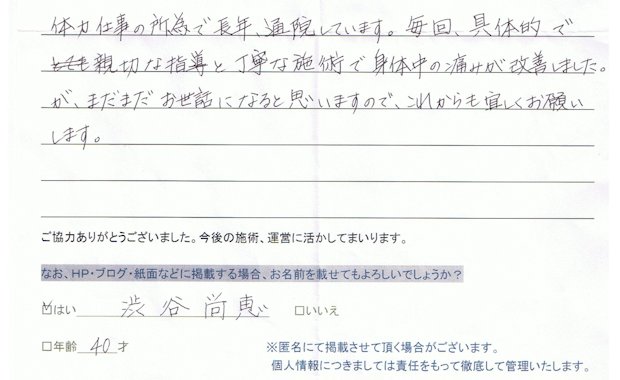 体力仕事の所為で長年、通院しています。毎回、具体的で
とても親切な指導と丁寧な施術で身体中の痛みが改善しました。
が、まだまだお世話になると思いますので、これからも宜しくお願い
します。
ご協力ありがとうございました。今後の施術、運営に活かしてまいります。
なお、HP・ブログ・紙面などに掲載する場合、お名前を載せてもよろしいでしょうか？
☑はい 渋谷尚恵 □いいえ
□年齢 40 才 ※匿名にて掲載させて頂く場合がございます。
個人情報につきましては責任をもって徹底して管理いたします。